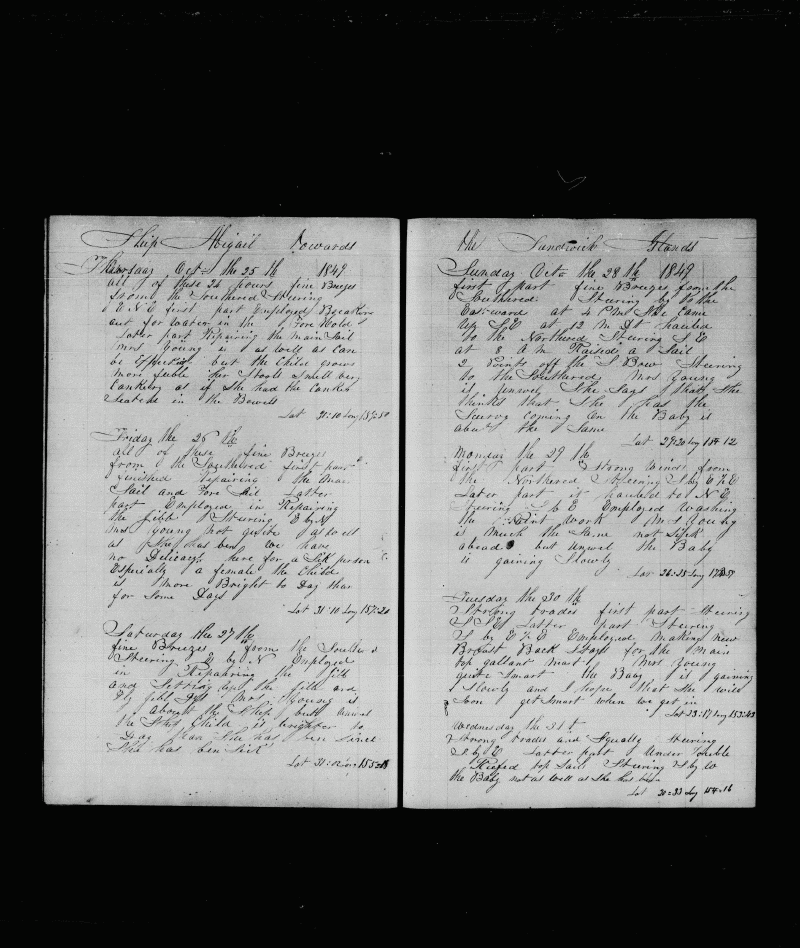 Ship Abigail Towards
Thursday Oct the 25 th 1849
all of these 24 hours fine Breezes
from the Southered Steering
E N E first part Employed Breaking
out for water in the Fore Hold
Latter part Repairing the main Sail
Mrs Young is as well as can
be but the Child grows
more feble her Stools Smell very
as if She had the Canker
in the Bowels
Lat 31:10 Long 157:50
Friday the 26 th
all of these fine Breezes
from the Southered first part
finished Repairing the main
Sail and Fore Sail Latter
part Employed in Repairing
the Jibb Steering E by N
Mrs Young not quite as well
as She has ben we have
no Delicacy here for a Sik person
Especially a female the Child
is more Bright to Day than
for Some Days
Lat 31:10 Long 157:20
Saturday the 27 th
fine Breezes from the
Steering E by N Employed
in Repairing the Jibb
and Setting up the Jibb and
Fly Jibb Mrs Young is
about the Ship but unwel
the Child is brighter to
Day than She has ben Since
She has ben Sick
Lat 31: 155:18
the Sandwich Ilands
Sunday Octo the 28 th 1849
first part fine Breezes from the
Southered Steering by to the
Eastward at 4 P M She came
up S E at 12 M It hauled
to the Northred Steering S E
at 8 A m Raised a Sail
2 Points off the Bow Steering
to the Southered Mrs Young
is unwel She Says that She
thinks that She has the
Scurvy coming On the Baby is
about the Same
Lat 29:20 Long 154 12
Monday the 29 th
first part Strong winds from
the Northered Steering S by E ½ E
Latter part it hauled to N E
Steering S by E Employed Washing
the Paint work Mrs Young
is Much the Same not Sick
abead but unwel the Baby
is gaining Slowly
Lat 26:28 Long
Tuesday the 30 th
Strong trades first part Steering
S S E Latter part Steering
S by E ½ E Employed Making new
Breast Back Stays for the Main
top gallant mast Mrs Young
quite Smart the Baby is gaining
Slowly and I hope that She will
Soon get Smart when we get in
Lat 23:17 Long 153:43
Wednesday the 31 t
Strong trades and Squally Steering
S by E Latter part Under Double
Reefed top Sails Steering S by W
the Baby not as well as She has ben
Lat 20=33 Long 154=16